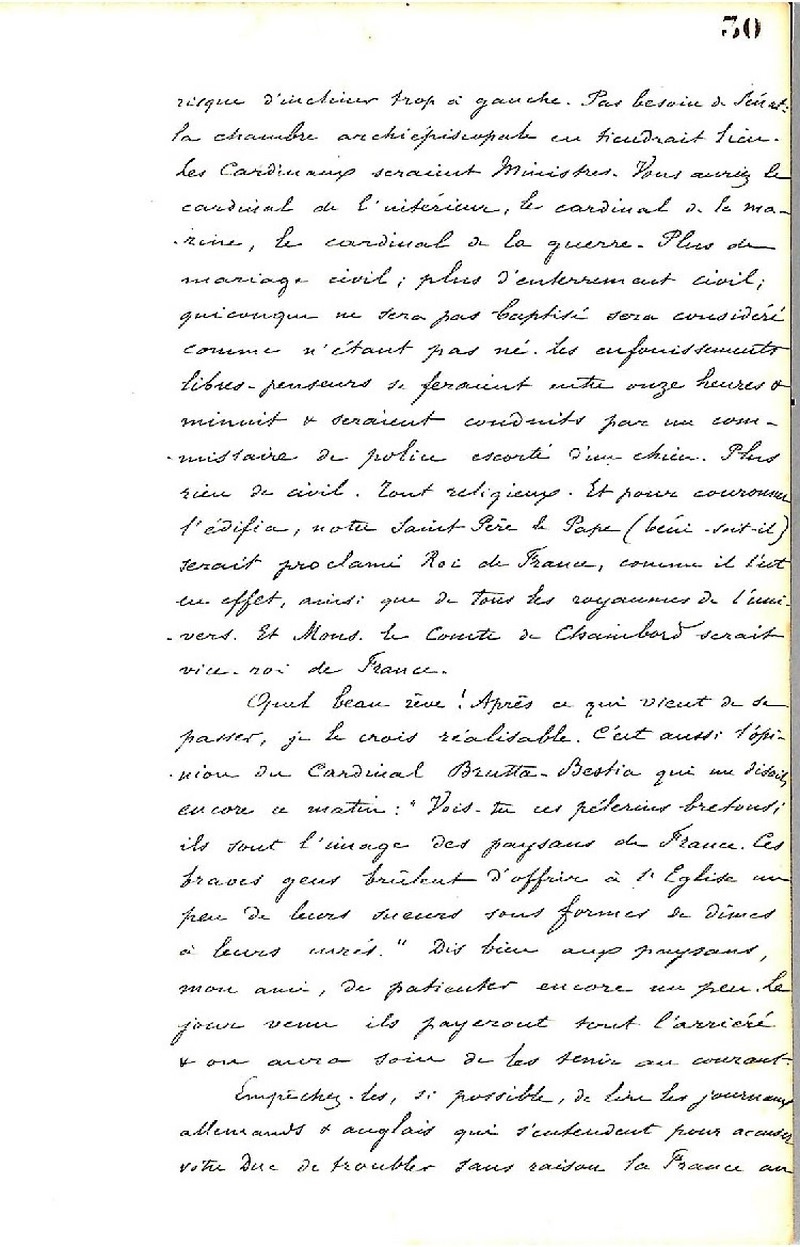 30
risque d'incliner trop à gauche. Pas besoin de Sénat:
la chambre archiépiscopale en tiendrait lieu.
les Cardinaux seraient Ministres. Vous auriez le
cardinal de l'intérieur, le cardinal de la ma-
-rine, le cardinal de la guerre. Plus de
mariage civil; plus d'enterrement civil;
quiconque ne sera pas baptisé sera considéré
comme n'étant pas né. les enfouissements
libres-penseurs se feraient entre onze heures &
minuit & seraient conduits par un com-
-missaire de police escorté d'un chien. Plus
rien de civil. Tout religieux. Et pour couronner
l'édifice, notre Saint Père le Pape (béni-soit-il)
serait proclamé Roi de France, comme il l'est
en effet, ainsi que de tous les royaumes de l'uni-
-vers. Et Mons. le Comte de Chambord serait
vice-roi de France.
Quel beau rêve! Après ce qui vient de se
passer, je le crois réalisable. C'est aussi l'opi-
-nion du Cardinal Brutta-Bestia qui me disait
encore ce matin: "Vois-tu ces pélerins bretons;
ils sont l'image des paysans de France. Ces
braves gens brûlent d'offrir à l'Eglise un
peu de leurs sueurs sous formes de dîmes
à leurs curés." Dis bien aux paysans,
mon ami, de patienter encore un peu. Le
jour venu ils payeront tout l'arriéré
& on aura soin de les tenir au courant.
Empêchez-les, si possible, de lire les journaux
allemands & anglais qui s'entendent pour accuser
votre Duc de troubler sans raison la France au